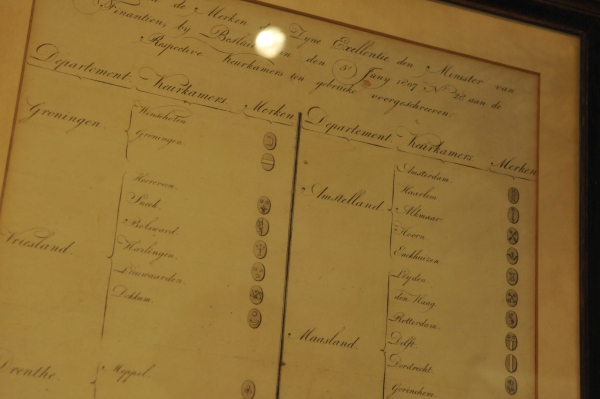 de Merken Zyne Excellentie den Minister van
Finantien, by Besluit den 5e Juny 1807 No 42 aan de
Respective Keurkamers ten gebruike voorgeschreven.
Departement Keurkamers Merken
Groningen
Winschoten
Groningen
Vriesland
Heerveen
Sneek
Bolsward
Harlingen
Leeuwaarden
Dokkum
Drenthe
Meppel
Departement Keurkamers Merken
Amstelland
Amsterdam
Haarlem
Alkmaar
Hoorn
Enckhuizen
Maasland
Leyden
den Haag
Rotterdam
Delft
Dordrecht
Gorinchem